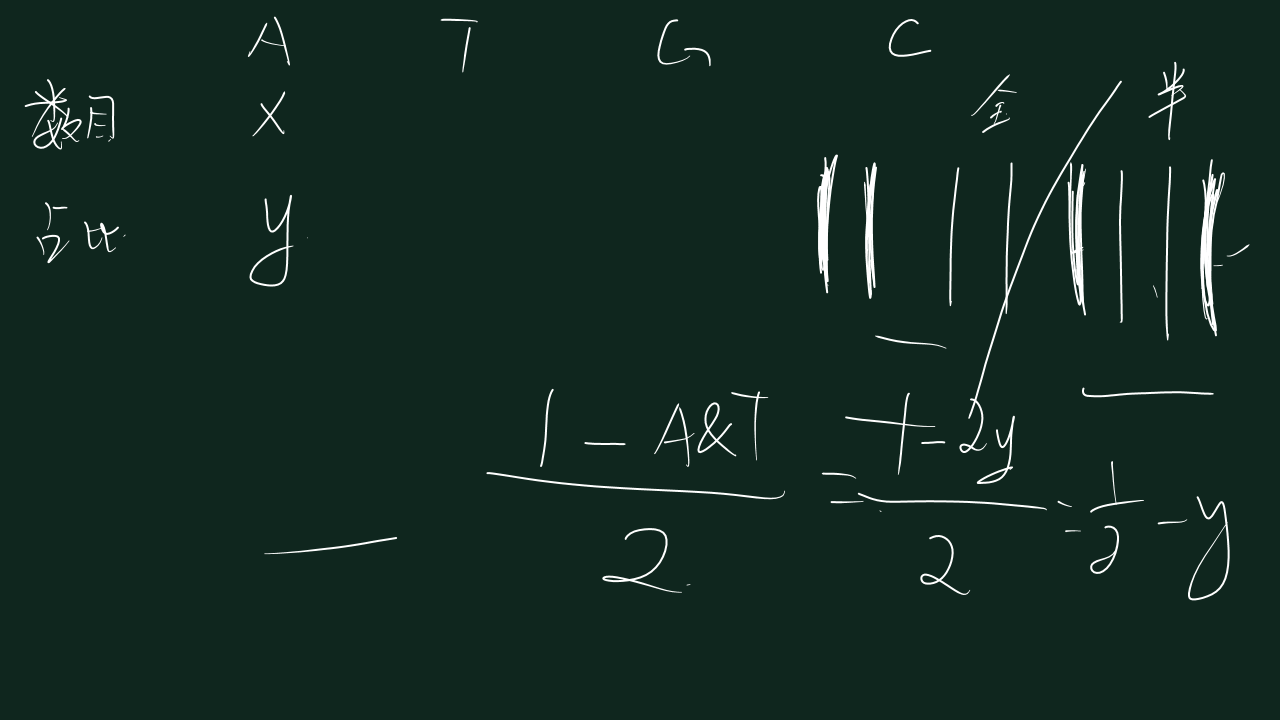 A T G C
数目 X 全 半
占比 y
1 - A&T / 2 = 1 - 2y / 2 = 1/2 - y